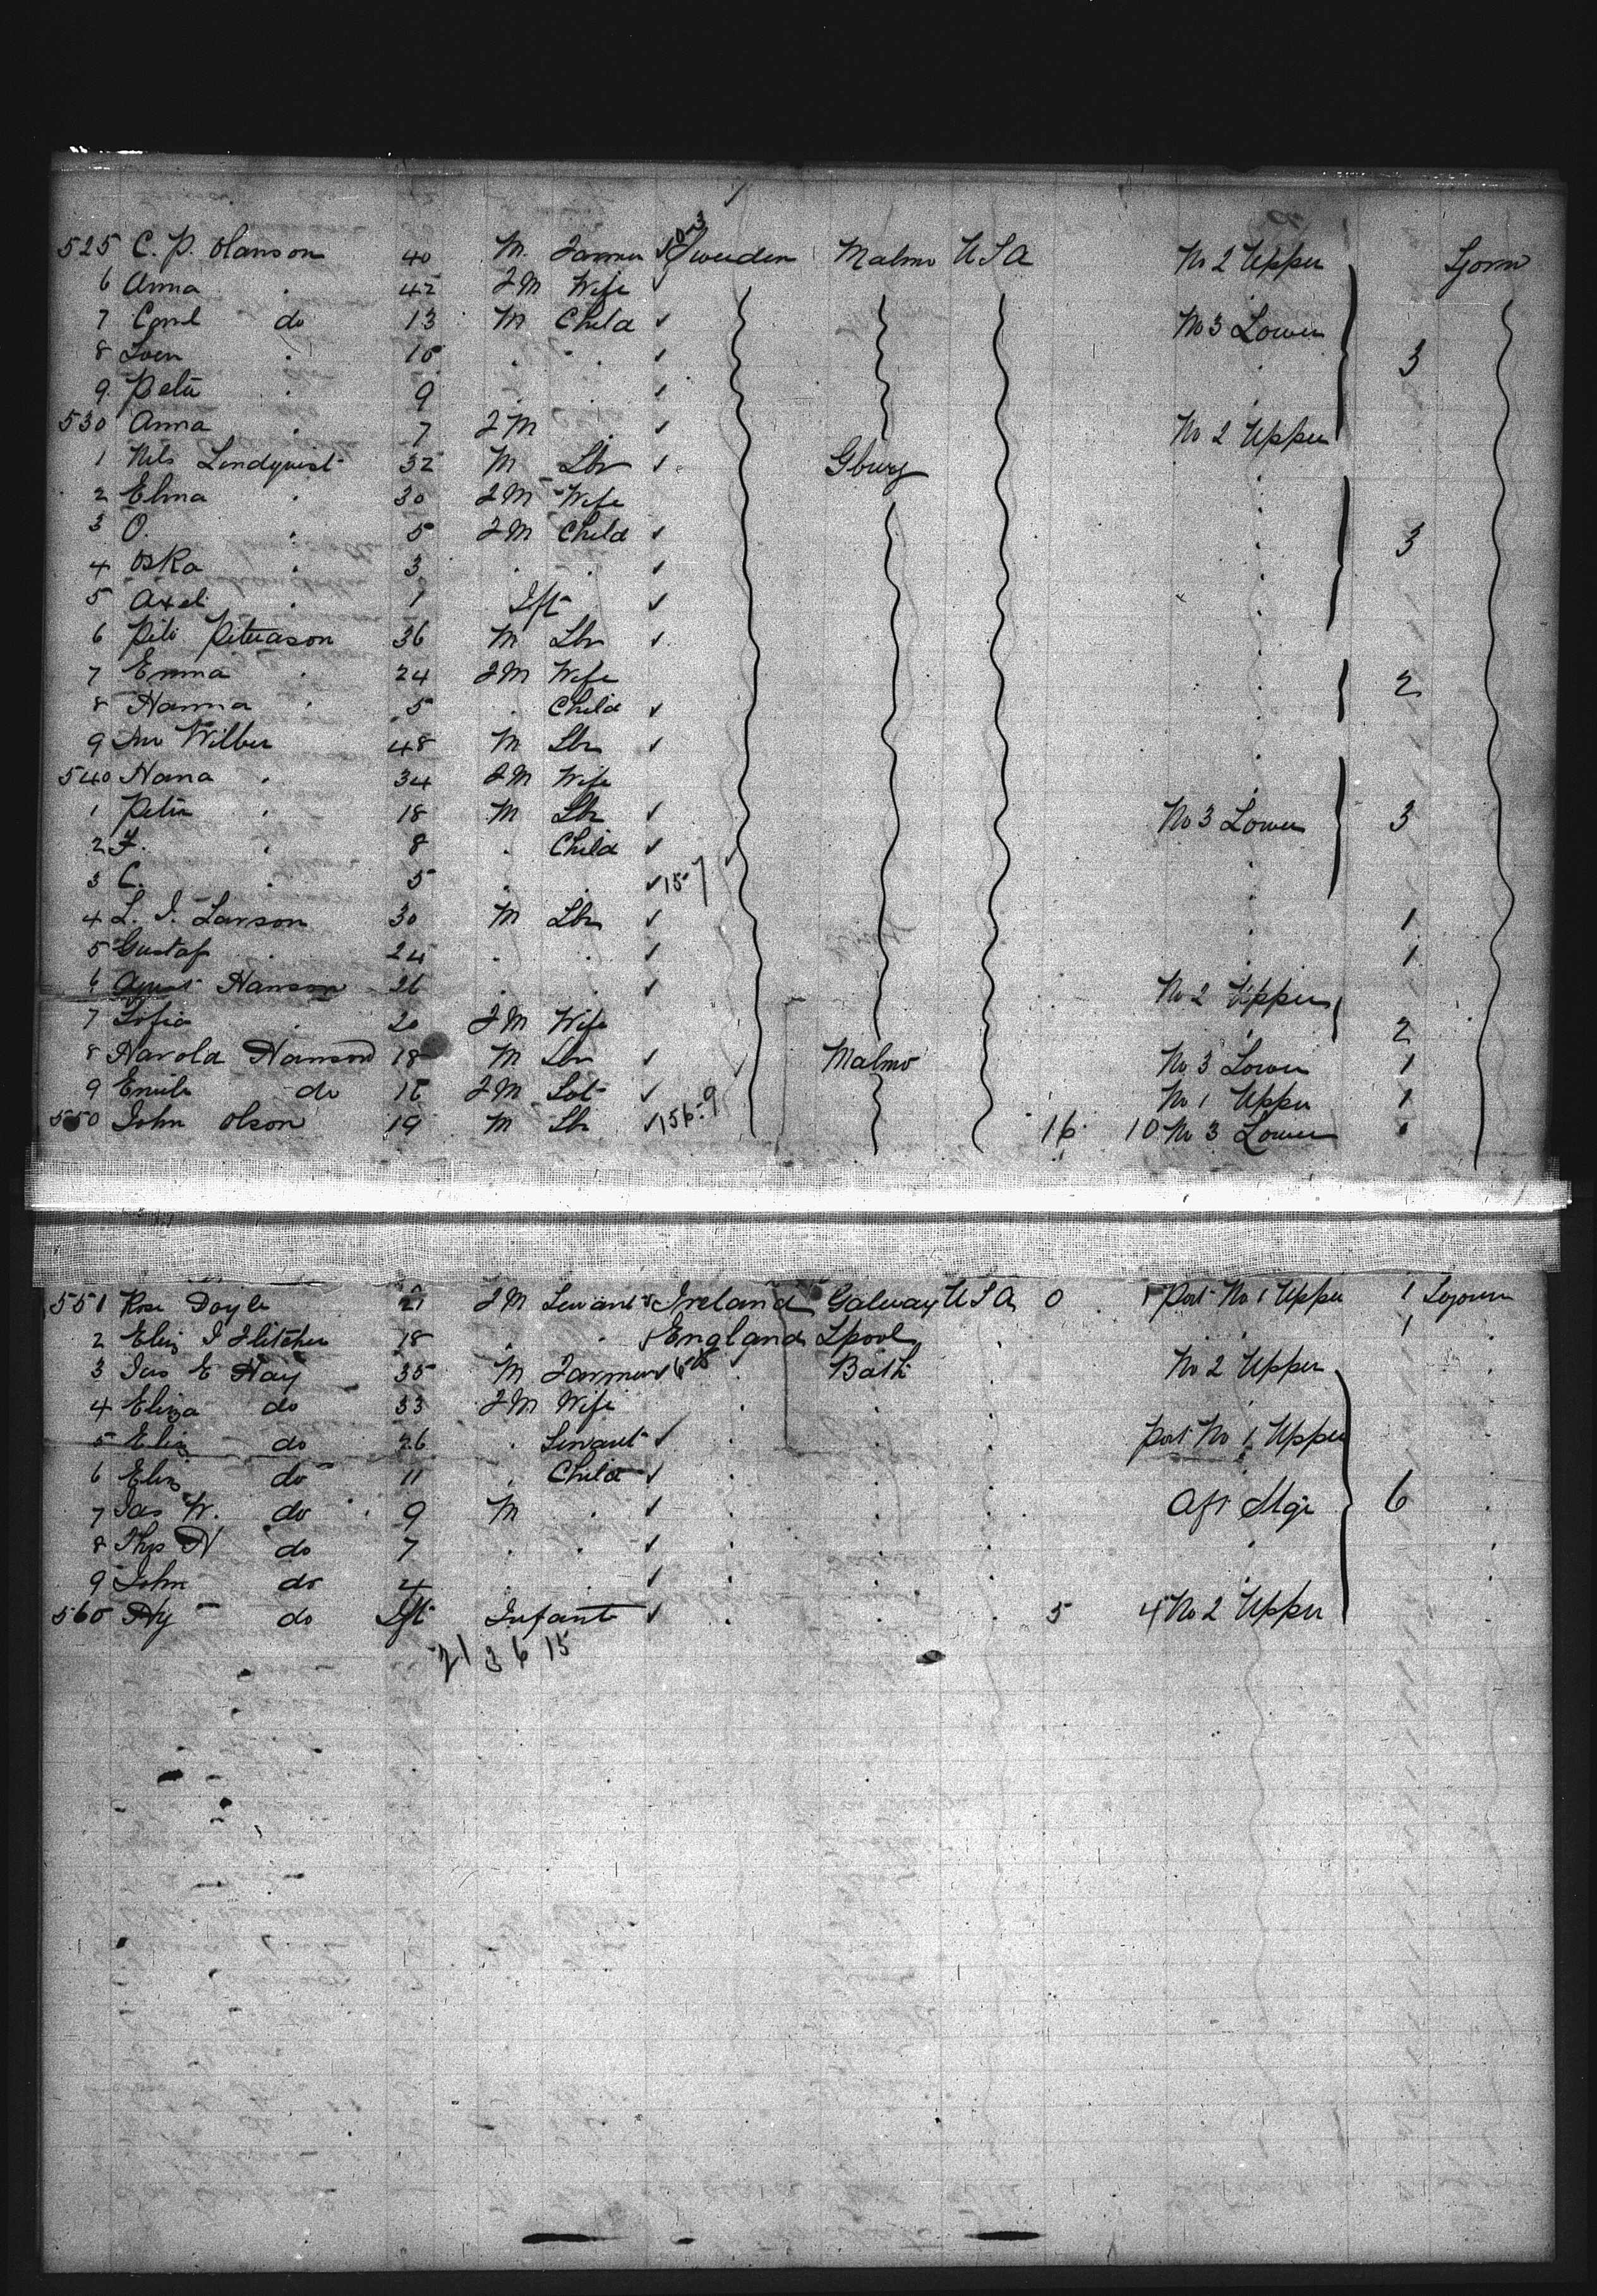 525 C. P. Hanson 40 M. Farmer Sweden Malmo USA No 2 Upper Sjorn
6 Anna . 42 FM Wife
7 Carel do 13 M Child ✓ No 3 Lower
8 Sven . 10 . . ✓ . 3
9 Peter . 9 . . ✓ .
530 Anna . 7 FM . ✓ No 2 Upper
1 Nels Lindquist 32 M Lbr ✓ Gburg
2 Elma . 30 FM Wife .
3 O. . 5 FM Child ✓ . 3
4 Oska . 3 . . ✓ .
5 Axel . 1 Ift ✓ .
6 Petterson 36 M Lbr ✓ .
7 Emma . 24 FM Wife . 2
8 Hanna . 5 . Child ✓ .
9 Jno Wilber 48 M Lbr ✓ .
540 Hana . 34 FM Wife .
1 Peter . 18 M Lbr ✓ No 3 Lower 3
2 F. . 8 . Child ✓ .
3 C. . 5 . . ✓ 157 .
4 L. J. Larson 30 M Lbr ✓ . 1
5 Gustaf . 24 . . ✓ . 1
6 August Hanson 26 . . ✓ No 2 Upper
7 Sofia . 20 FM Wife . 2
8 Harold Hanson 18 M Lbr ✓ Malmo No 3 Lower 1
9 Emile do 16 FM ✓ No 1 Upper 1
550 John Olson 19 M Lbr ✓ 156-9 16 10 No 3 Lower 1
551 Rose Doyle 21 FM Servant ✓ Ireland Galway USA 0 1 Port No 1 Upper 1 Sojourn
2 Eliz J Fletcher 18 . . England Lpool . 1 .
3 Jas E Hay 35 M Farmer ✓ . Bath . No 2 Upper .
4 Eliza do 33 FM Wife . . .
5 Eliz do 26 . Servant ✓ . . . Port No 1 Upper .
6 Eliz do 11 . Child ✓ . . . .
7 Jas W. do 9 M . ✓ . . . Aft Stge 6 .
8 Thos H do 7 . . ✓ . . . .
9 John do 4 . . ✓ . . . .
560 Hy do Ift Infant ✓ . . . 5 4 No 2 Upper
21 3 6 15